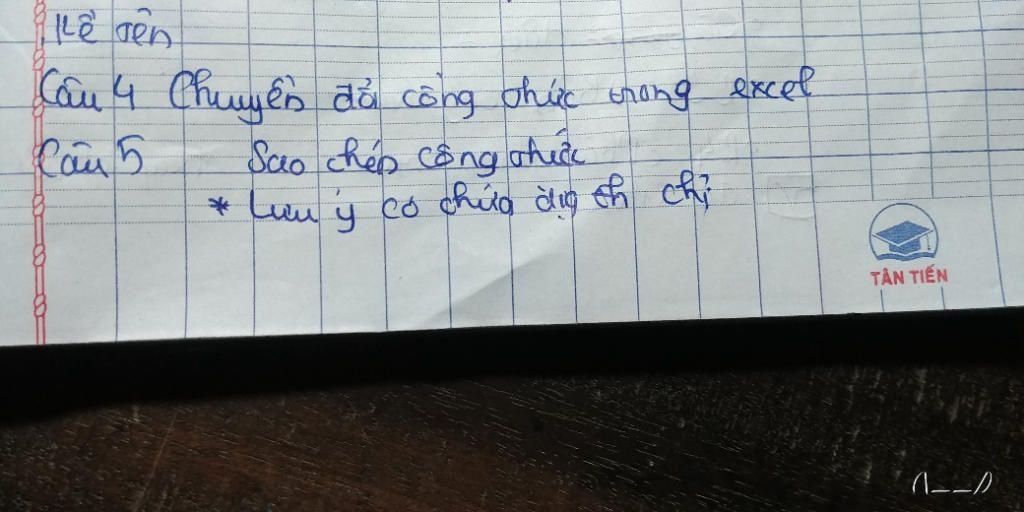 Kể tên
Câu 4 Chuyển đổi công thức trong excel
Câu 5 Sao chép công thức
* Lưu ý có chứa địa ch chỉ
TÂN TIẾN